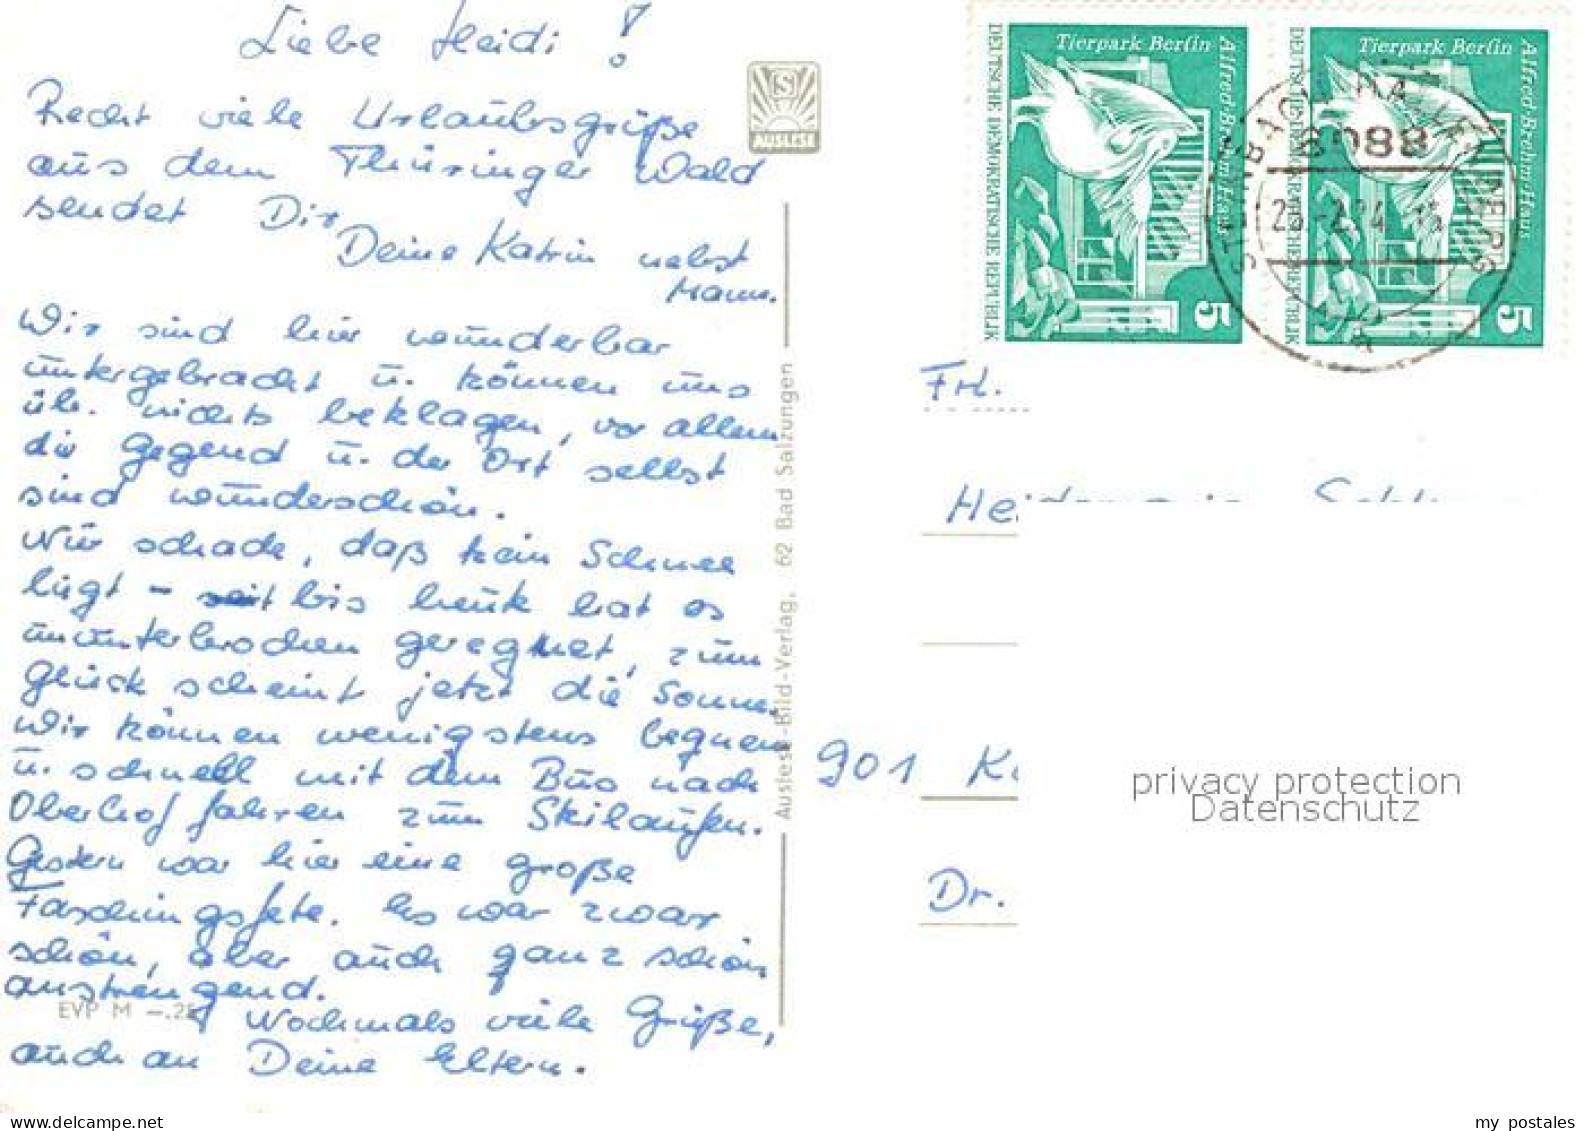 Liebe Heidi!
Recht viele Urlaubsgrüße
aus dem Thüringer Wald
sendet Dir
Deine Katrin nebst
Mann.
Wir sind hier wunderbar
untergebracht u. können uns
üb. nichts beklagen, vor allem
die Gegend u. der Ort selbst
sind wunderschön.
Nur schade, daß kein Schnee
liegt - bis heute hat es
ununterbrochen geregnet, zum
Glück scheint jetzt die Sonne.
Wir können wenigstens bequem
u. schnell mit dem Bus nach
Oberhof fahren zum Skilaufen.
Gestern war hier eine große
Faschingsfete. Es war zwar
schön, aber auch ganz schön
anstrengend.
Nochmals viele Grüße,
auch an Deine Eltern.
EVP M -.25
S
AUSLESE
Auslese-Bild-Verlag, 62 Bad Salzungen
DEUTSCHE DEMOKRATISCHE REPUBLIK
Tierpark Berlin
Alfred-Brehm-Haus
5
DEUTSCHE DEMOKRATISCHE REPUBLIK
Tierpark Berlin
Alfred-Brehm-Haus
5
STEINBACH-HALLENBERG
6088
Frl.
901
Dr.
privacy protection
Datenschutz
my postales